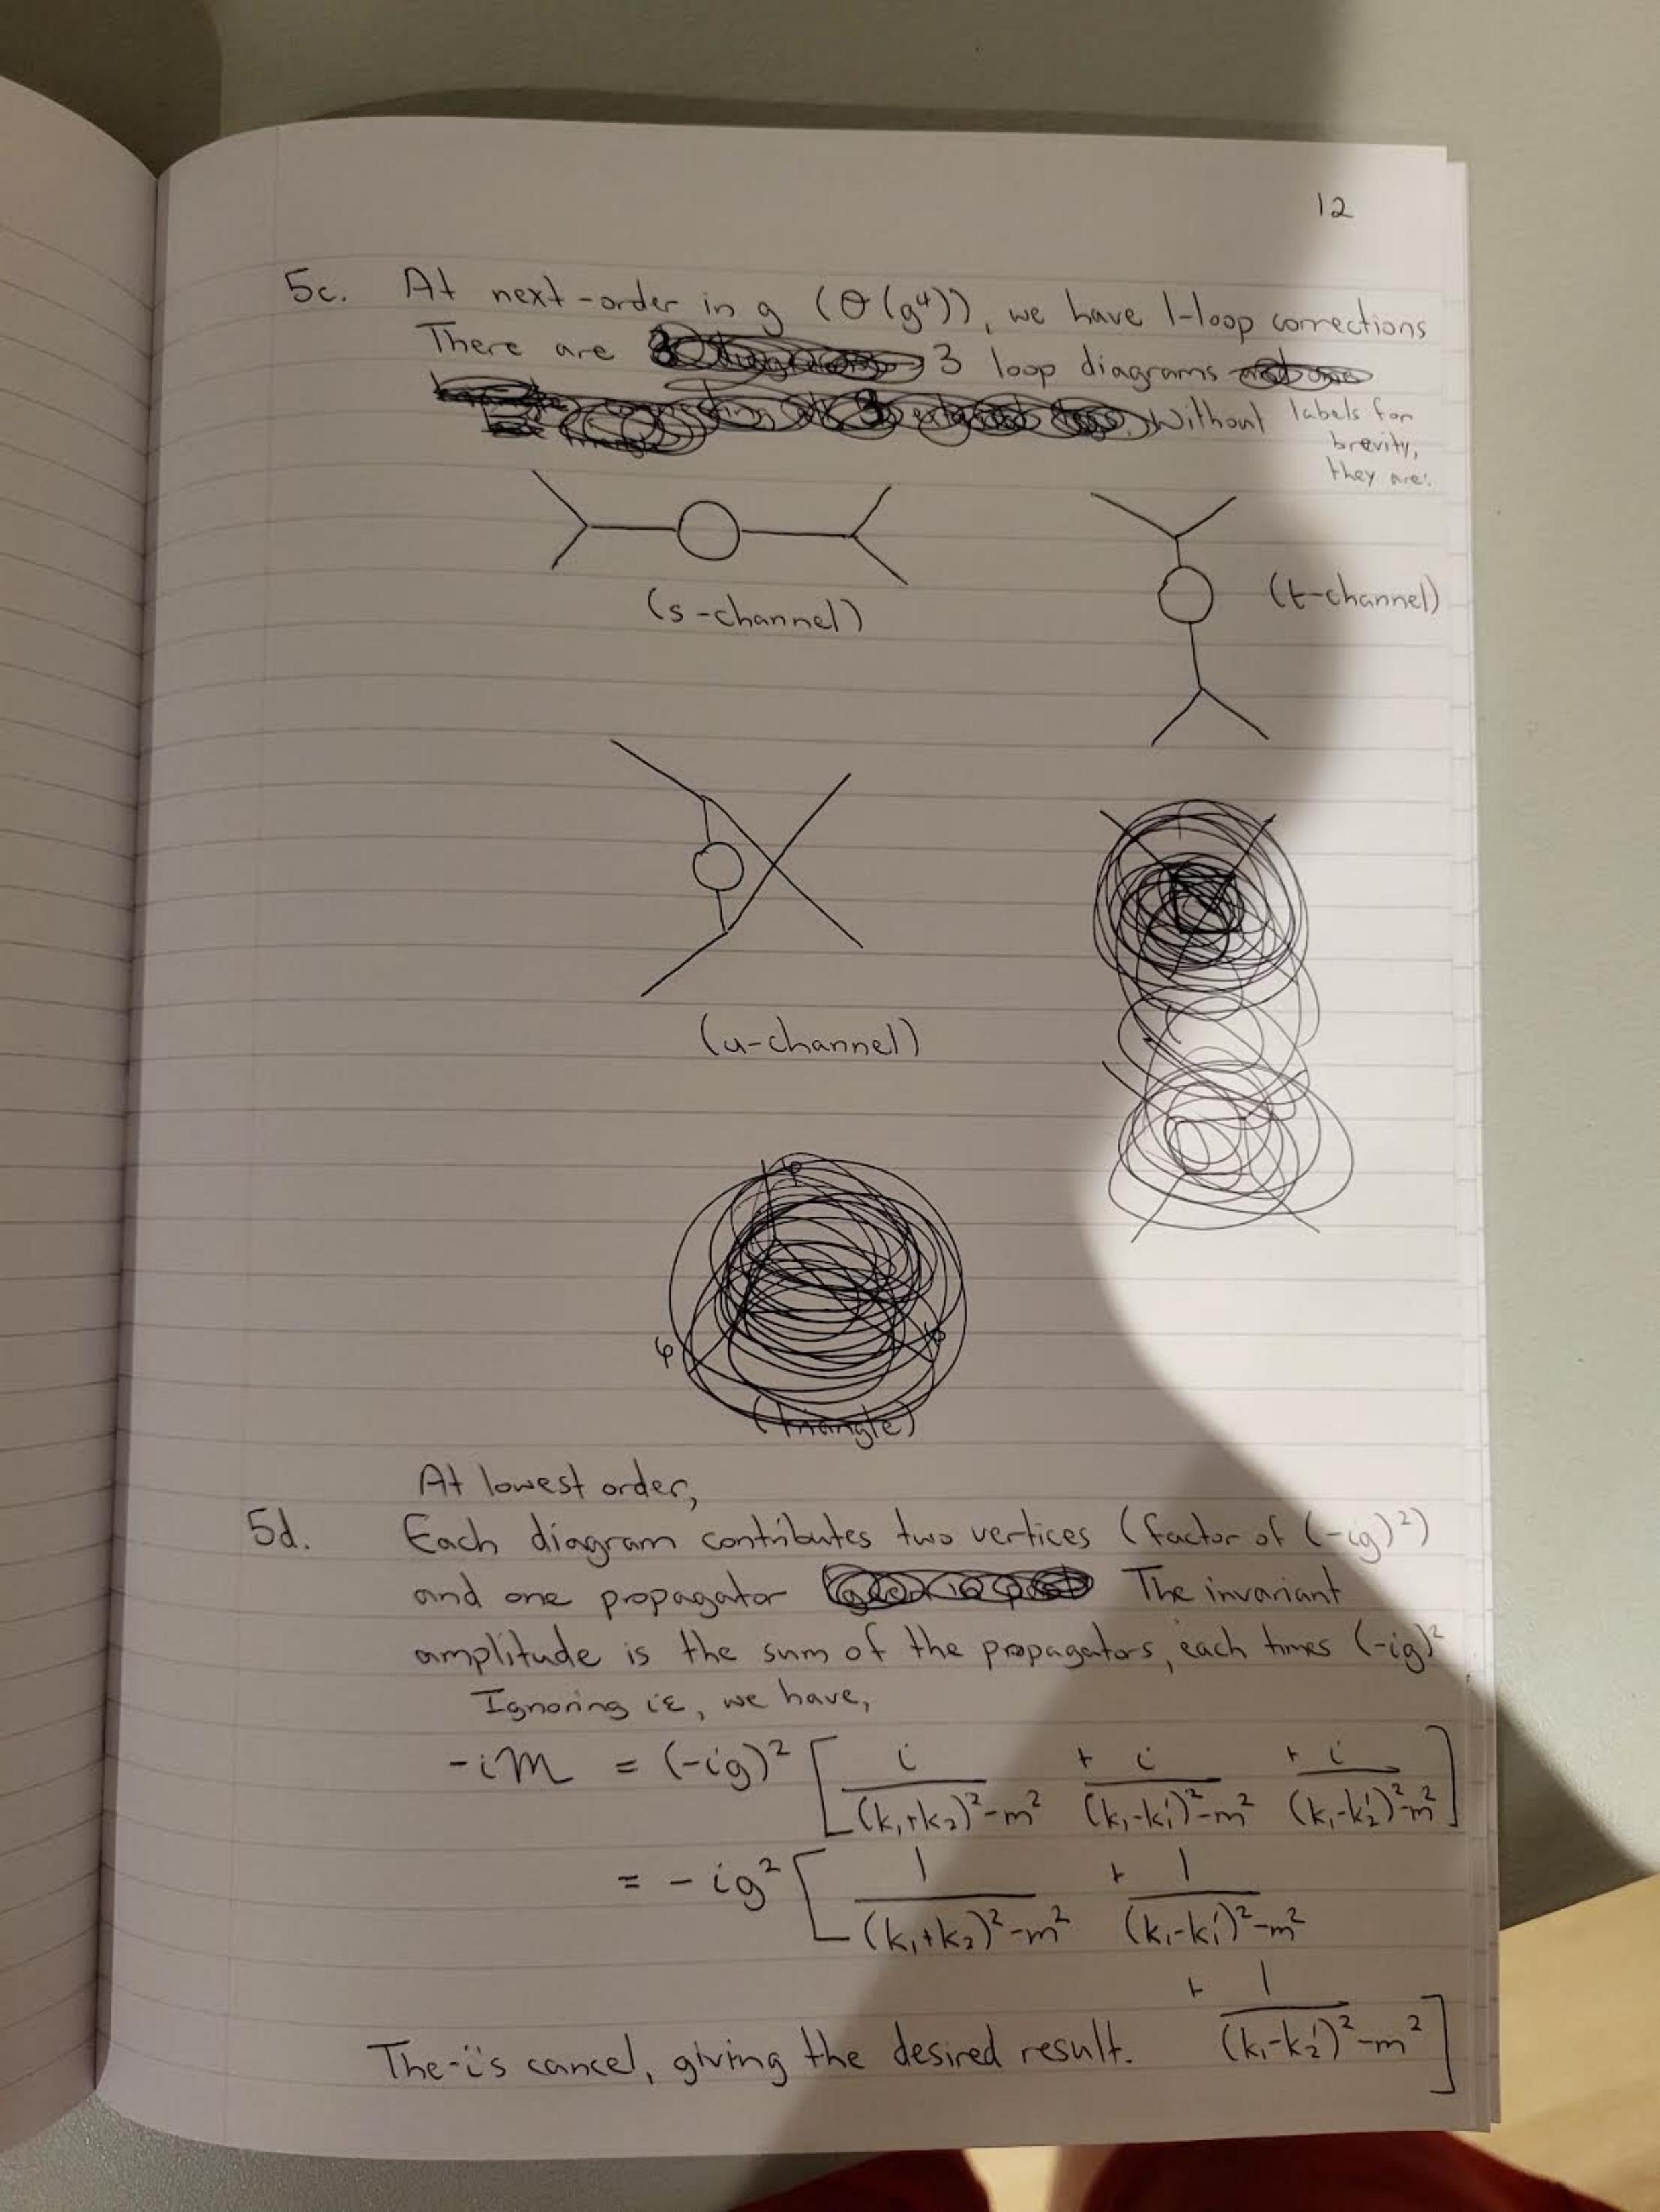 12
5c. At next-order in g (O(g⁴)), we have 1-loop corrections
There are 3 loop diagrams
Without labels for
brevity,
they are:
(s-channel)
(t-channel)
(u-channel)
φ
φ
φ
(triangle)
At lowest order,
5d. Each diagram contributes two vertices (factor of (-ig)²)
and one propagator The invariant
amplitude is the sum of the propagators, each times (-ig)².
Ignoring iε, we have,
-iM = (-ig)² [ i/((k₁+k₂)²-m²) + i/((k₁-k₁')²-m²) + i/((k₁-k₂')²-m²) ]
= -ig² [ 1/((k₁+k₂)²-m²) + 1/((k₁-k₁')²-m²)
+ 1/((k₁-k₂')²-m²) ]
The -i's cancel, giving the desired result.